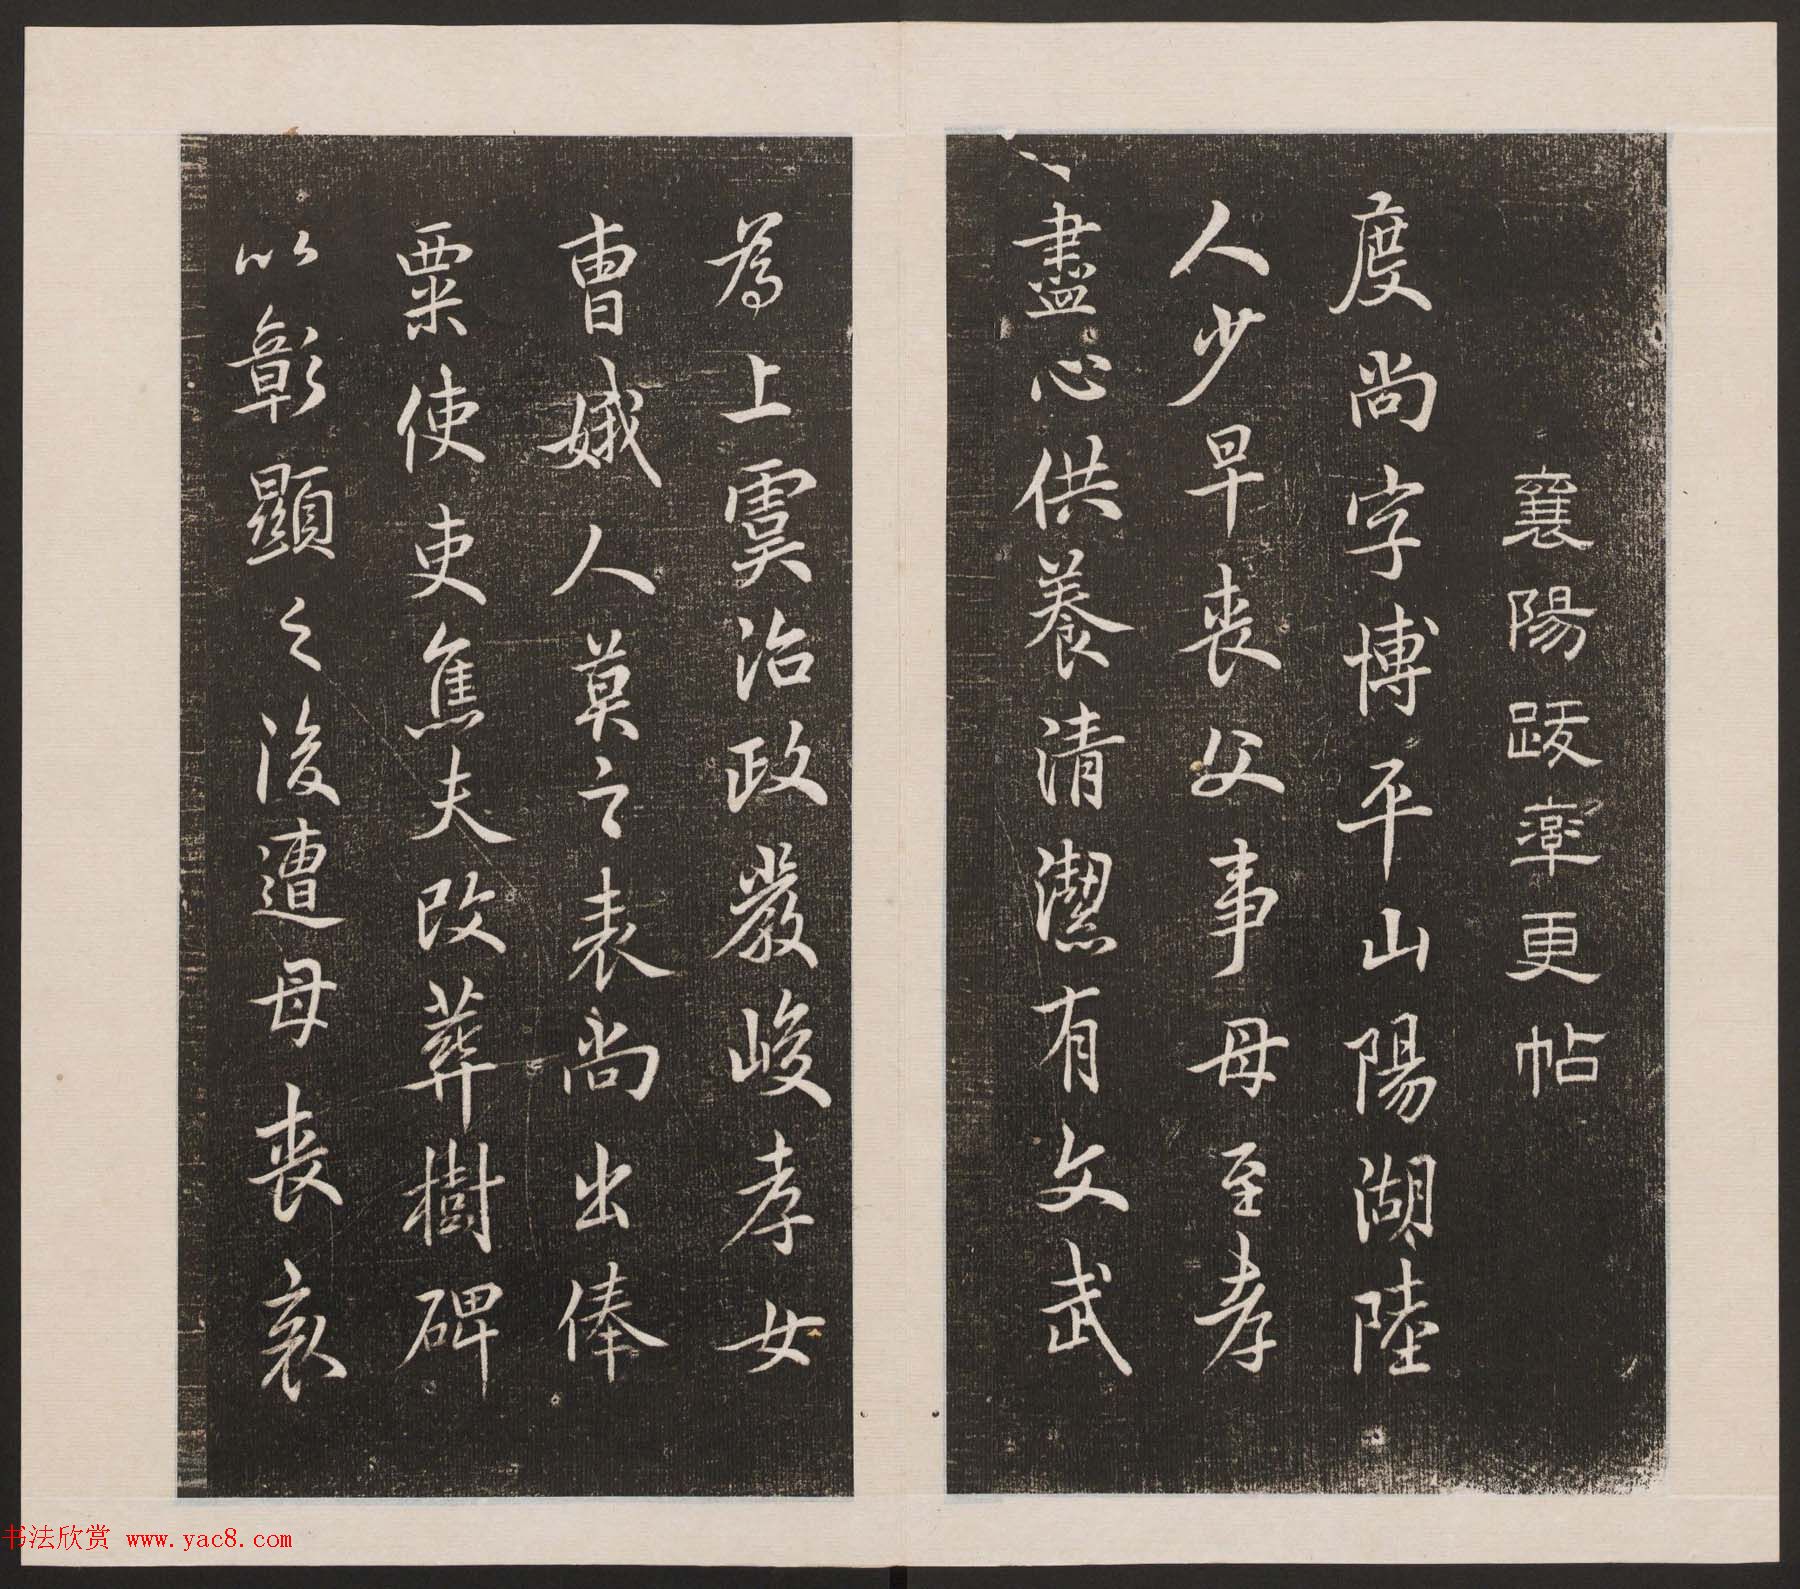 襄陽跋率更帖
度尚字博平山陽湖陸
人少早喪父事母至孝
盡心供養清潔有文武
為上虞治政嚴峻孝女
曹娥人莫之表尚出俸
粟使吏焦夫改葬樹碑
以彰顯之後遭母喪哀
书法欣赏 www.yac8.com